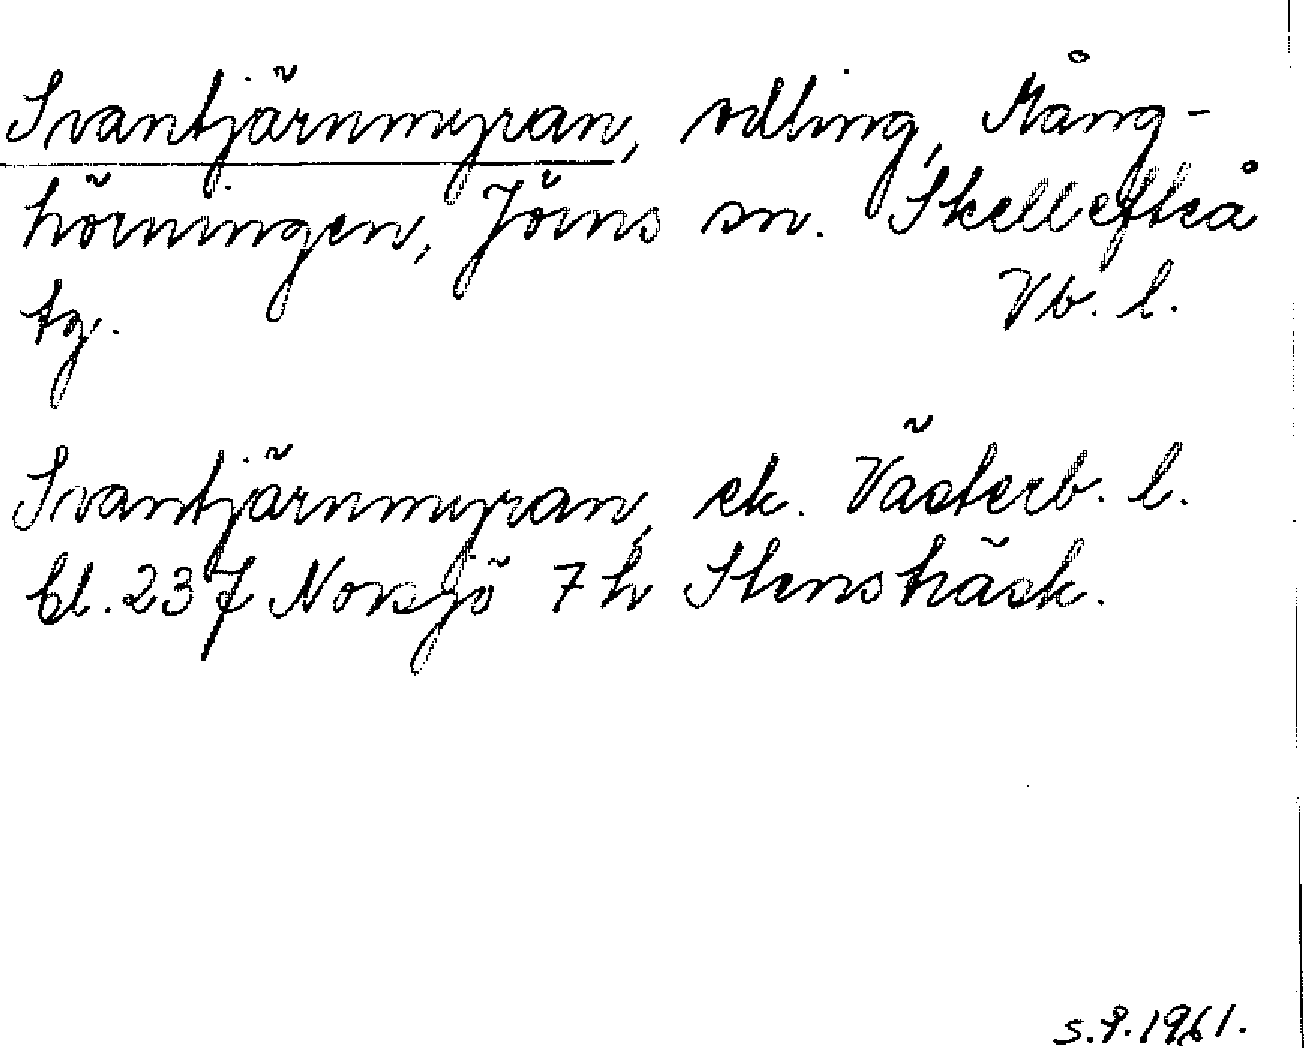 Svantjärnmyran, odling, Mång-
hörningen, Jörns sn. Skellefteå
tg. Vb. l.
Svantjärnmyran, ek. Västerb. l.
bl. 237 Norsjö 7h Stensträsk.
S.P.1961.